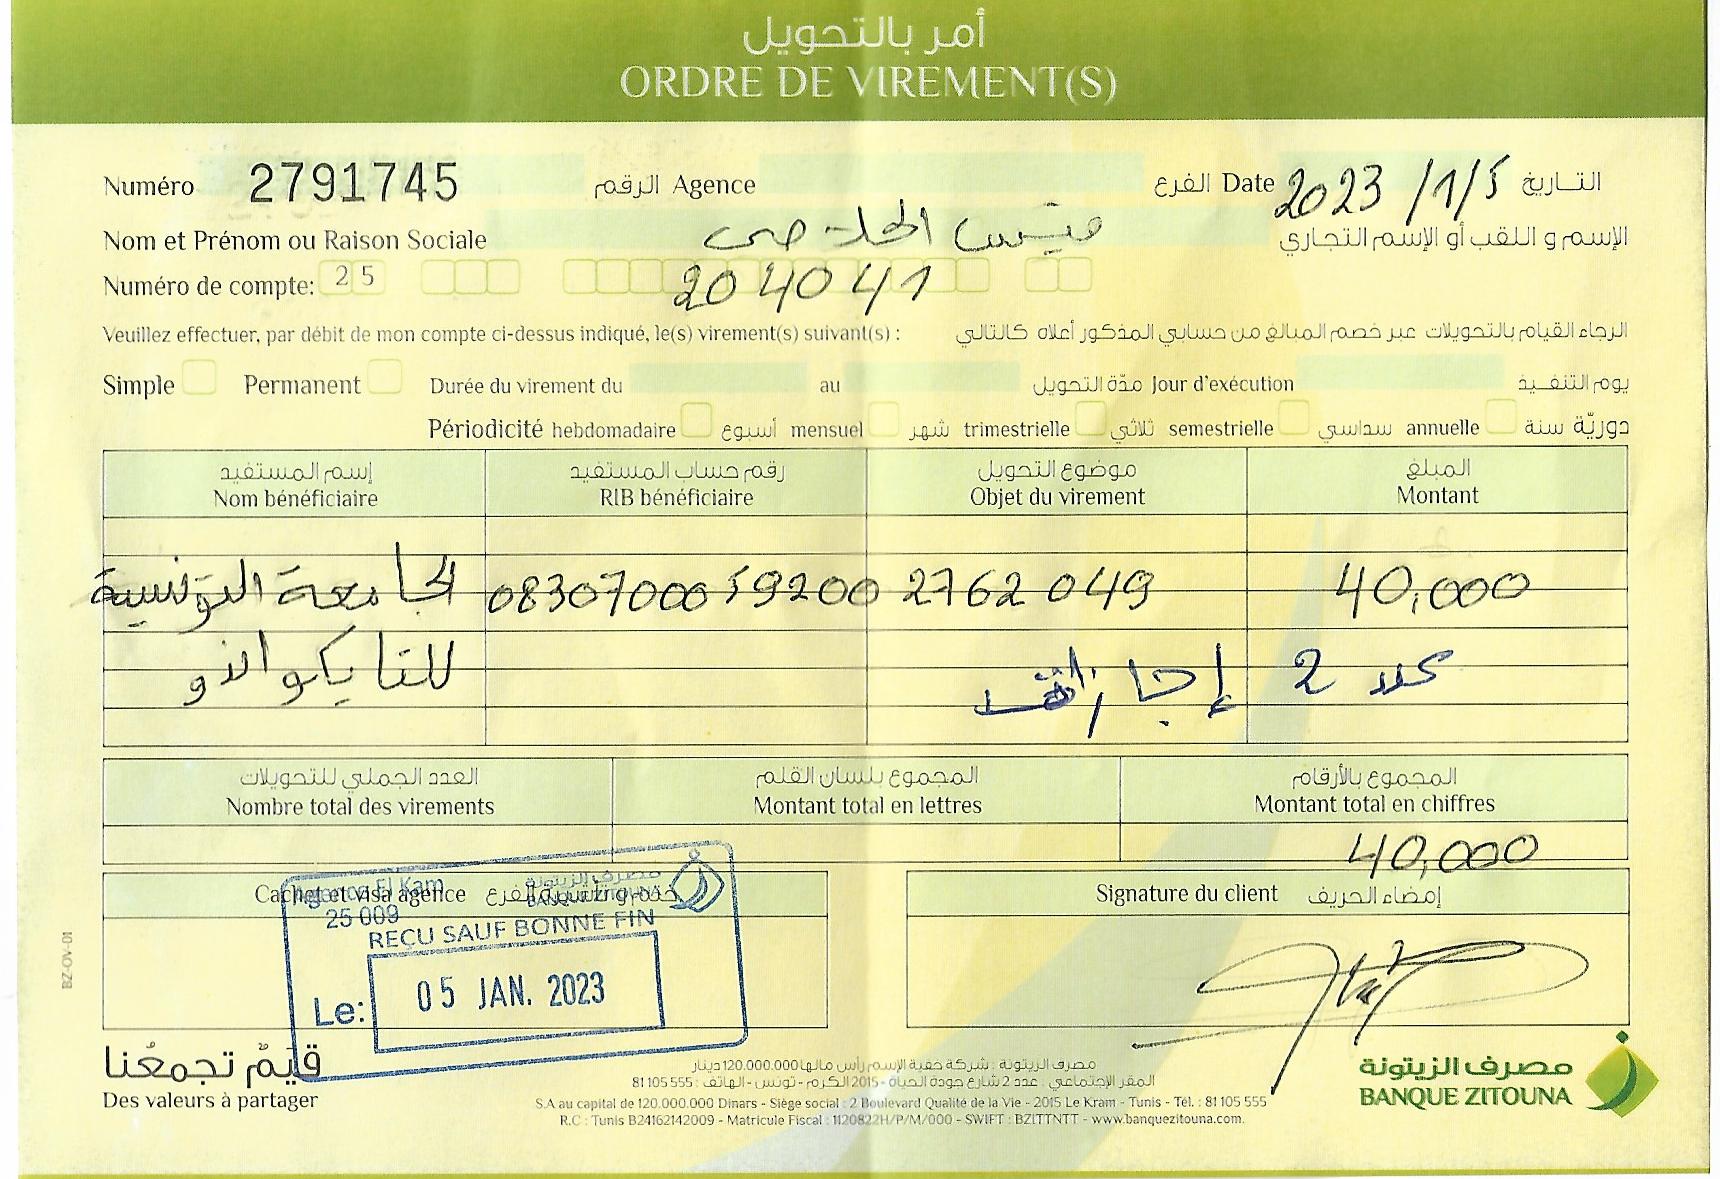 أمر بالتحويل
ORDRE DE VIREMENT(S)
Numéro 2791745 الرقم Agence الفرع Date 2023/1/5 التاريخ
Nom et Prénom ou Raison Sociale الإسم و اللقب أو الإسم التجاري
Numéro de compte: 25 204041
Veuillez effectuer, par débit de mon compte ci-dessus indiqué, le(s) virement(s) suivant(s) : الرجاء القيام بالتحويلات عبر خصم المبالغ من حسابي المذكور أعلاه كالتالي
Simple Permanent Durée du virement du au مدّة التحويل Jour d'exécution يوم التنفيذ
Périodicité hebdomadaire أسبوع mensuel شهر trimestrielle ثلاثي semestrielle سداسي annuelle دوريّة سنة
إسم المستفيد رقم حساب المستفيد موضوع التحويل المبلغ
Nom bénéficiaire RIB bénéficiaire Objet du virement Montant
الجامعة التونسية 0830700059200 2762 049 40,000
للتايكواندو عدد 2
العدد الجملي للتحويلات المجموع بلسان القلم المجموع بالأرقام
Nombre total des virements Montant total en lettres Montant total en chiffres
40,000
Cachet et visa agence ختم و تأشيرة الفرع Signature du client إمضاء الحريف
Agence El Kram مصرف الزيتونة
25 009 BANQUE ZITOUNA
REÇU SAUF BONNE FIN
Le: 05 JAN. 2023
BZ-OV-01
قيَمٌ تجمعُنا
Des valeurs à partager
مصرف الزيتونة : شركة خفية الإسم رأس مالها 120.000.000 دينار
المقر الإجتماعي : عدد 2 شارع جودة الحياة - 2015 الكرم - تونس - الهاتف : 555 105 81
S.A au capital de 120.000.000 Dinars - Siège social : 2 Boulevard Qualité de la Vie - 2015 Le Kram - Tunis - Tél. : 81 105 555
R.C : Tunis B24162142009 - Matricule Fiscal : 1120822H/P/M/000 - SWIFT : BZITTNTT - www.banquezitouna.com.
مصرف الزيتونة
BANQUE ZITOUNA